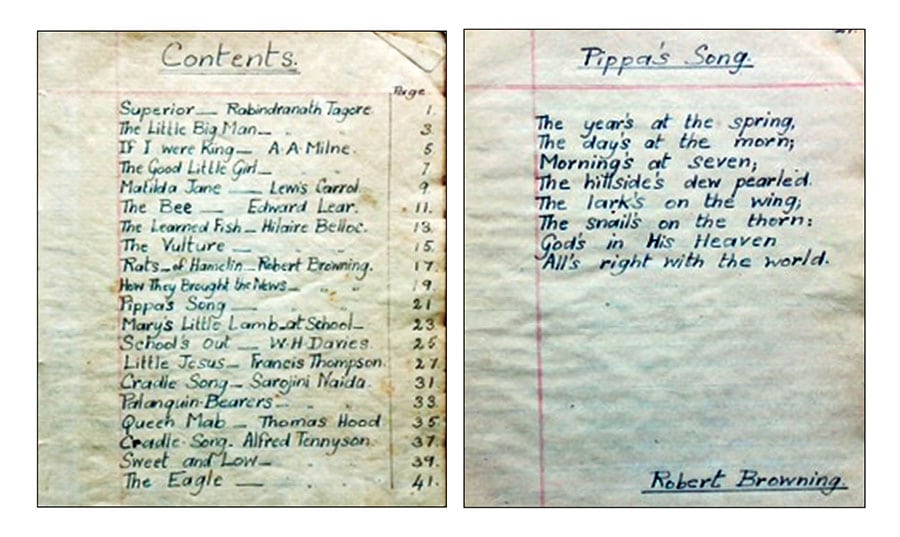 Contents.
Page
Superior — Rabindranath Tagore. 1.
The Little Big Man — " " 3
If I were King — A. A. Milne. 5
The Good Little Girl — " " 7
Matilda Jane — Lewis Carrol. 9
The Bee — Edward Lear. 11.
The Learned Fish — Hilaire Belloc. 13.
The Vulture — " " 15.
Rats — of Hamelin — Robert Browning. 17.
How They Brought the News — " " 19.
Pippa's Song — " " 21
Mary's Little Lamb — at School — 23.
School's Out — W. H. Davies. 25
Little Jesus — Francis Thompson. 27.
Cradle Song — Sarojini Naidu. 31.
Palanquin-Bearers — " " 33.
Queen Mab — Thomas Hood 35.
Cradle-Song. Alfred Tennyson. 37.
Sweet and Low — " " 39.
The Eagle — " " 41.
21.
Pippa's Song.
The year's at the spring,
The day's at the morn;
Morning's at seven;
The hillside's dew pearled.
The lark's on the wing;
The snail's on the thorn:
God's in His Heaven
All's right with the world.
Robert Browning.